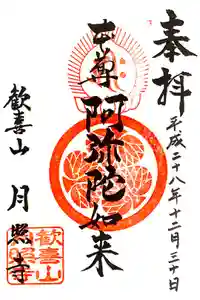 奉拝
平成二十八年十二月三十日
本尊 阿弥陀如来
歓喜山 月照寺
歓喜山